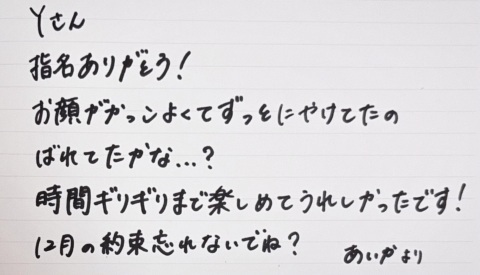 Yさん
指名ありがとう!
お顔がかっこよくてずっとにやけてたの
ばれてたかな...?
時間ギリギリまで楽しめてうれしかったです!
12月の約束忘れないでね?
あいかより